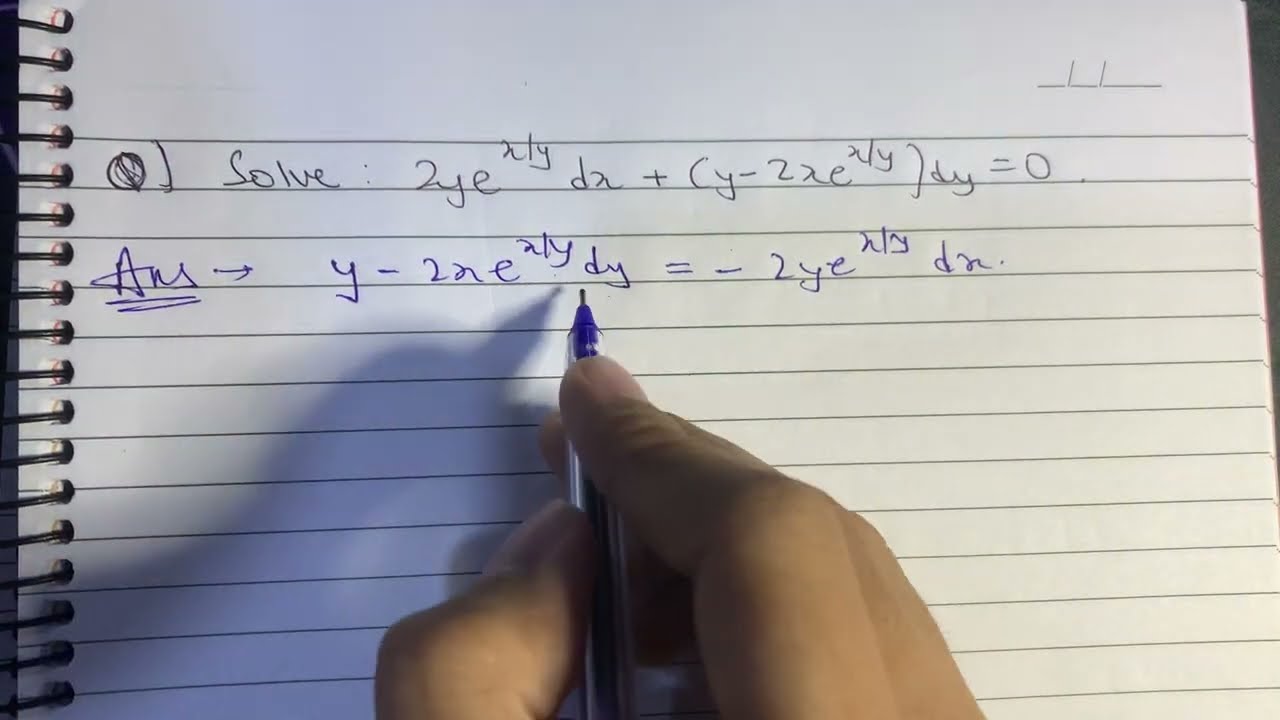 __/__/____
Q] Solve : 2ye^{x/y} dx + (y-2xe^{x/y})dy = 0.
Ans → y - 2xe^{x/y} dy = - 2ye^{x/y} dx.